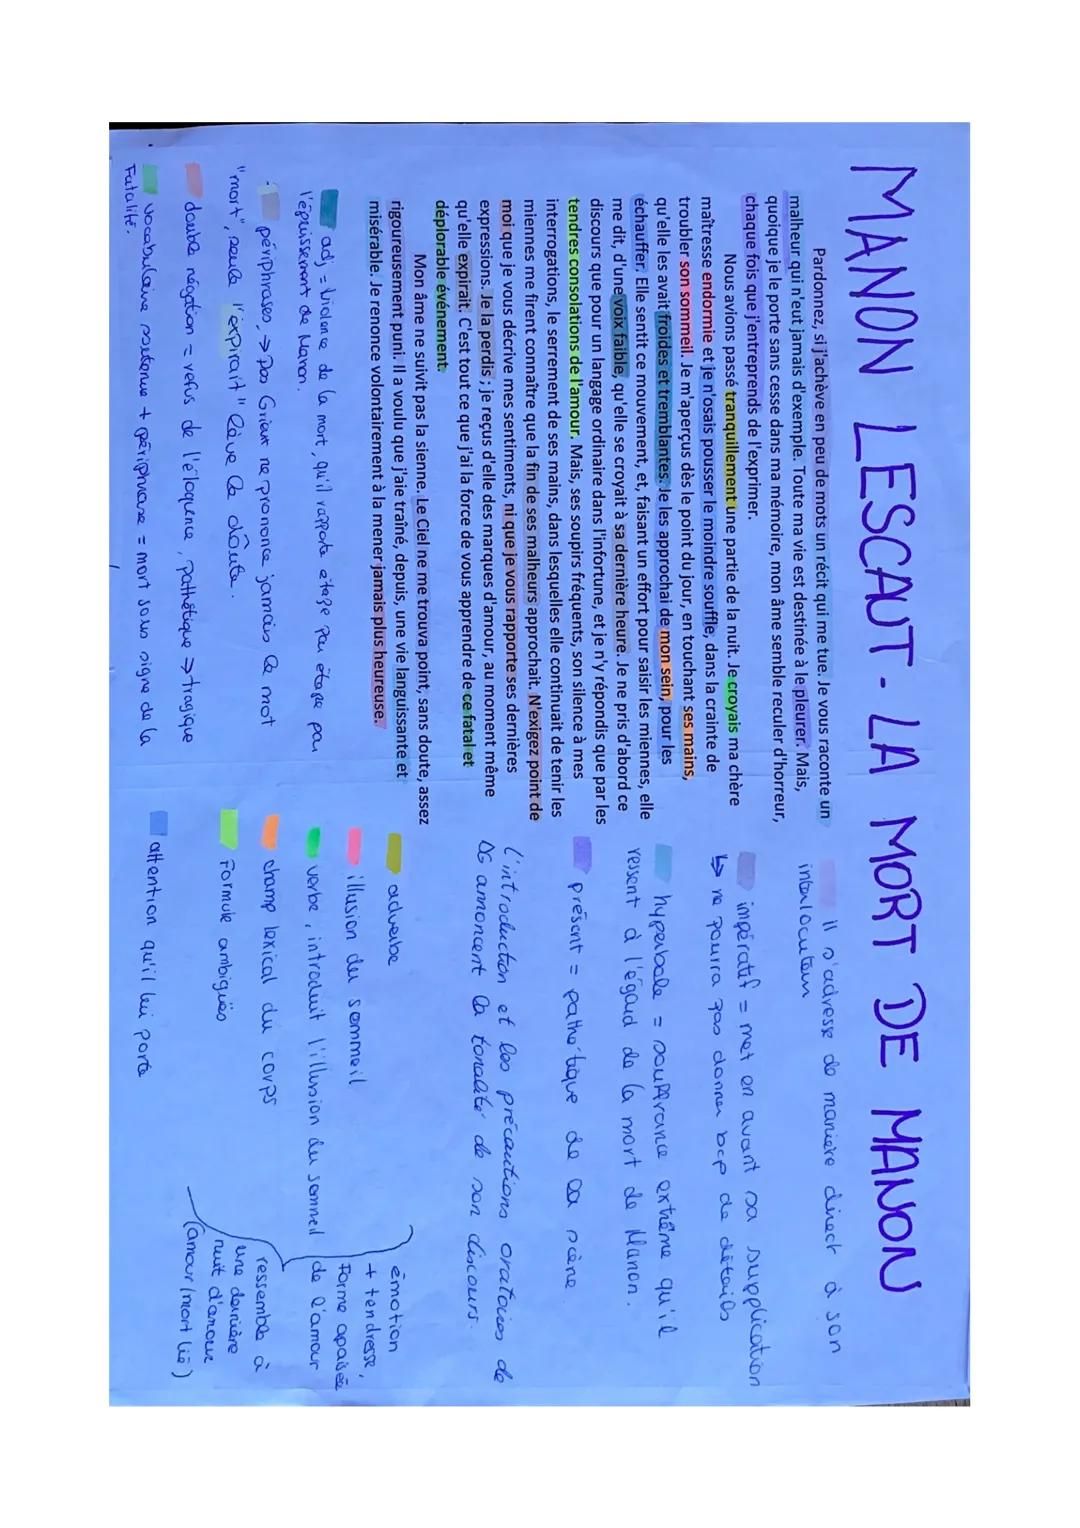 MANON LESCAUT - LA MORT DE MANON
Pardonnez, si j'achève en peu de mots un récit qui me tue. Je vous raconte un
malheur qui n'eut jamais d'exemple. Toute ma vie est destinée à le pleurer. Mais,
quoique je le porte sans cesse dans ma mémoire, mon âme semble reculer d'horreur,
chaque fois que j'entreprends de l'exprimer.
Nous avions passé tranquillement une partie de la nuit. Je croyais ma chère
maîtresse endormie et je n'osais pousser le moindre souffle, dans la crainte de
troubler son sommeil. Je m'aperçus dès le point du jour, en touchant ses mains,
qu'elle les avait froides et tremblantes. Je les approchai de mon sein, pour les
échauffer. Elle sentit ce mouvement, et, faisant un effort pour saisir les miennes, elle
me dit, d'une voix faible, qu'elle se croyait à sa dernière heure. Je ne pris d'abord ce
discours que pour un langage ordinaire dans l'infortune, et je n'y répondis que par les
tendres consolations de l'amour. Mais, ses soupirs fréquents, son silence à mes
interrogations, le serrement de ses mains, dans lesquelles elle continuait de tenir les
miennes me firent connaître que la fin de ses malheurs approchait. N'exigez point de
moi que je vous décrive mes sentiments, ni que je vous rapporte ses dernières
expressions. Je la perdis ; je reçus d'elle des marques d'amour, au moment même
qu'elle expirait. C'est tout ce que j'ai la force de vous apprendre de ce fatal et
déplorable événement.
Mon âme ne suivit pas la sienne. Le Ciel ne me trouva point, sans doute, assez
rigoureusement puni. Il a voulu que j'aie traîné, depuis, une vie languissante et
misérable. Je renonce volontairement à la mener jamais plus heureuse.
adj = violence de la mort, qu'il rapporte étape par étape par
l'épuissement de Manon.
périphrases, → Des Grieux ne prononce jamais le mot
"mort", seule l'"expirait" lève le doute.
double négation = refus de l'éloquence, pathétique → tragique
vocabulaire soutenue + périphrase = mort sous signe de la
Fatalité.
Il s'adresse de manière direct à son
interlocuteur
impératif = met en avant sa supplication
↳ ne pourra pas donner bcp de détails
hyperbole = souffrance extrême qu'il
ressent à l'égard de la mort de Manon.
présent = pathétique de la scène
l'introduction et les précautions oratoires de
DG annoncent la tonalité de son discours.
adverbe
illusion du sommeil
verbe, introduit l'illusion du sommeil
champ lexical du corps
Formule ambiguës
attention qu'il lui porte
émotion
+ tendresse,
Forme apaisée
de l'amour
ressemble à
une dernière
nuit d'amour
(amour/mort lié)